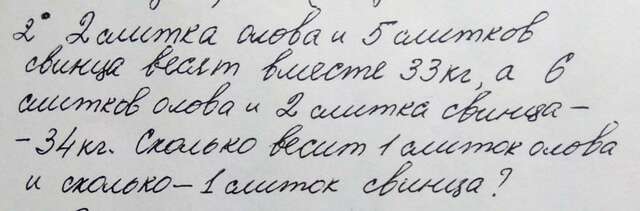 2° 2 слитка олова и 5 слитков
свинца весят вместе 33кг, а 6
слитков олова и 2 слитка свинца –
– 34кг. Сколько весит 1 слиток олова
и сколько – 1 слиток свинца?